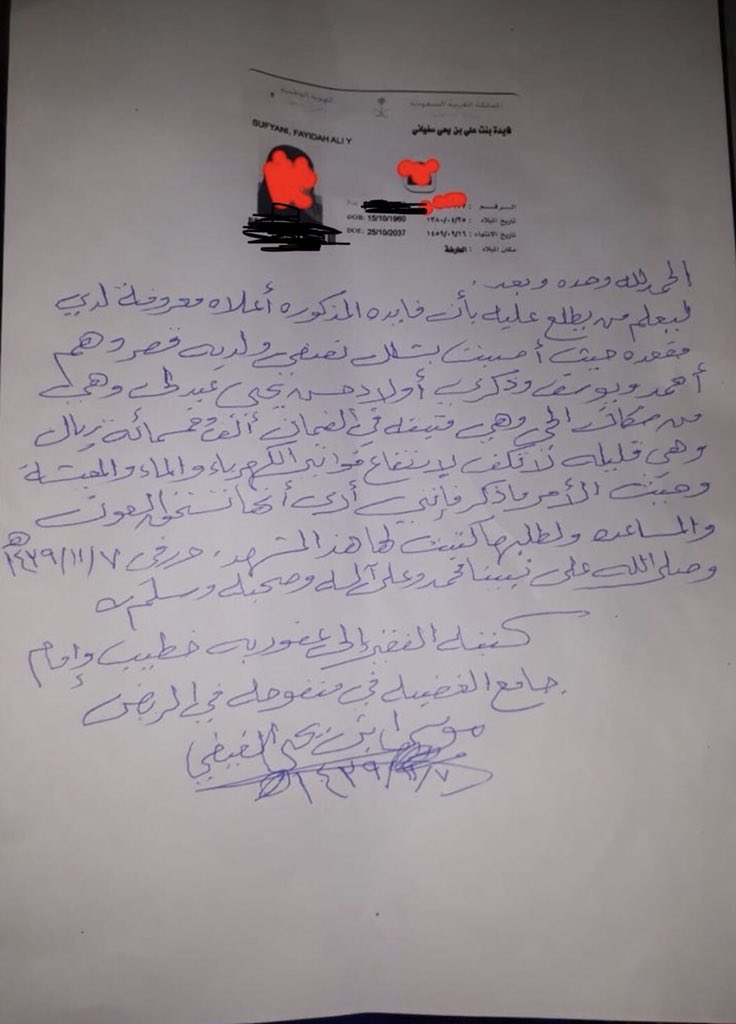 المملكة العربية السعودية
الهوية الوطنية
فايدة بنت علي بن يحي سفياني
SUFYANI, FAYIDAH ALI Y
الرقم :
تاريخ الميلاد : ١٣٨٠/٠٤/٢٥ DOB: 15/10/1960
تاريخ الانتهاء : ١٤٥٩/٠٩/١٦ DOE: 25/10/2037
مكان الميلاد : العارضة
الحمد لله وحده وبعد .
ليعلم من يطلع عليه بأن فايده المذكوره أعلاه معروفة لدي
مقعده حيث أصيبت بشلل نصفي ولديه قصر وهم
أحمد ويوسف وذكرى أولاد حسن يحيى عبدلي وهي
من سكان الحي وهي الضمان ألف وخمسمائة ريال
وهي قليله لا تكف لإرتفاع فواتير الكهرباء والماء والمعيشة
وحيث الأمر ما ذكر فإنني أرى أنها تستحق العون
والمساعده ولطلبها كتبت لها هذا المشهد . حرر في ١٤٣٩/١١/٧ هـ
وصلى الله على نبينا محمد وعلى آله وصحبه وسلم
كتبه الفقير إلى عفو ربه خطيب وإمام
جامع الفضيله في منفوحه في الرياض
موسى بن يحي الفيفي
١٤٣٩/١١/٧